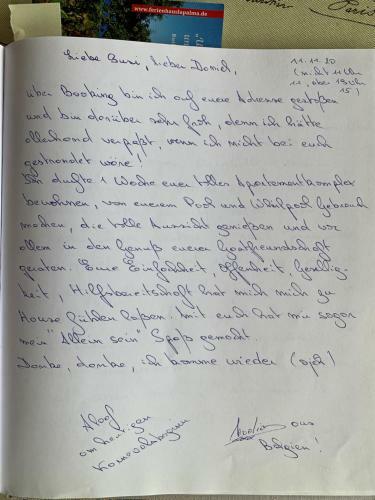 www.ferienhauslapalma.de
Liebe Busi, lieber Daniel,
11.11.20
(nicht 11 Uhr
11, aber 13 Uhr
15)
über Booking bin ich auf eure Adresse gestoßen
und bin darüber sehr froh, denn ich hätte
allerhand verpaßt, wenn ich nicht bei euch
gestrandet wäre!
Ich durfte 1 Woche euer tolles Apartementkomplex
bewohnen, von eurem Pool und Whirlpool Gebrauch
machen, die tolle Aussicht genießen und vor
allem in den Genuß eurer Gastfreundschaft
geraten. Eure Einfachheit, Offenheit, Gesellig-
keit, Hilfsbereitschaft hat mich mich zu
Hause fühlen laßen. Mit euch hat mir sogar
mein "Allein sein" Spaß gemacht.
Danke, danke, ich komme wieder
Alaaf
am heutigen
Karnevalsbeginn
aus
Belgien!